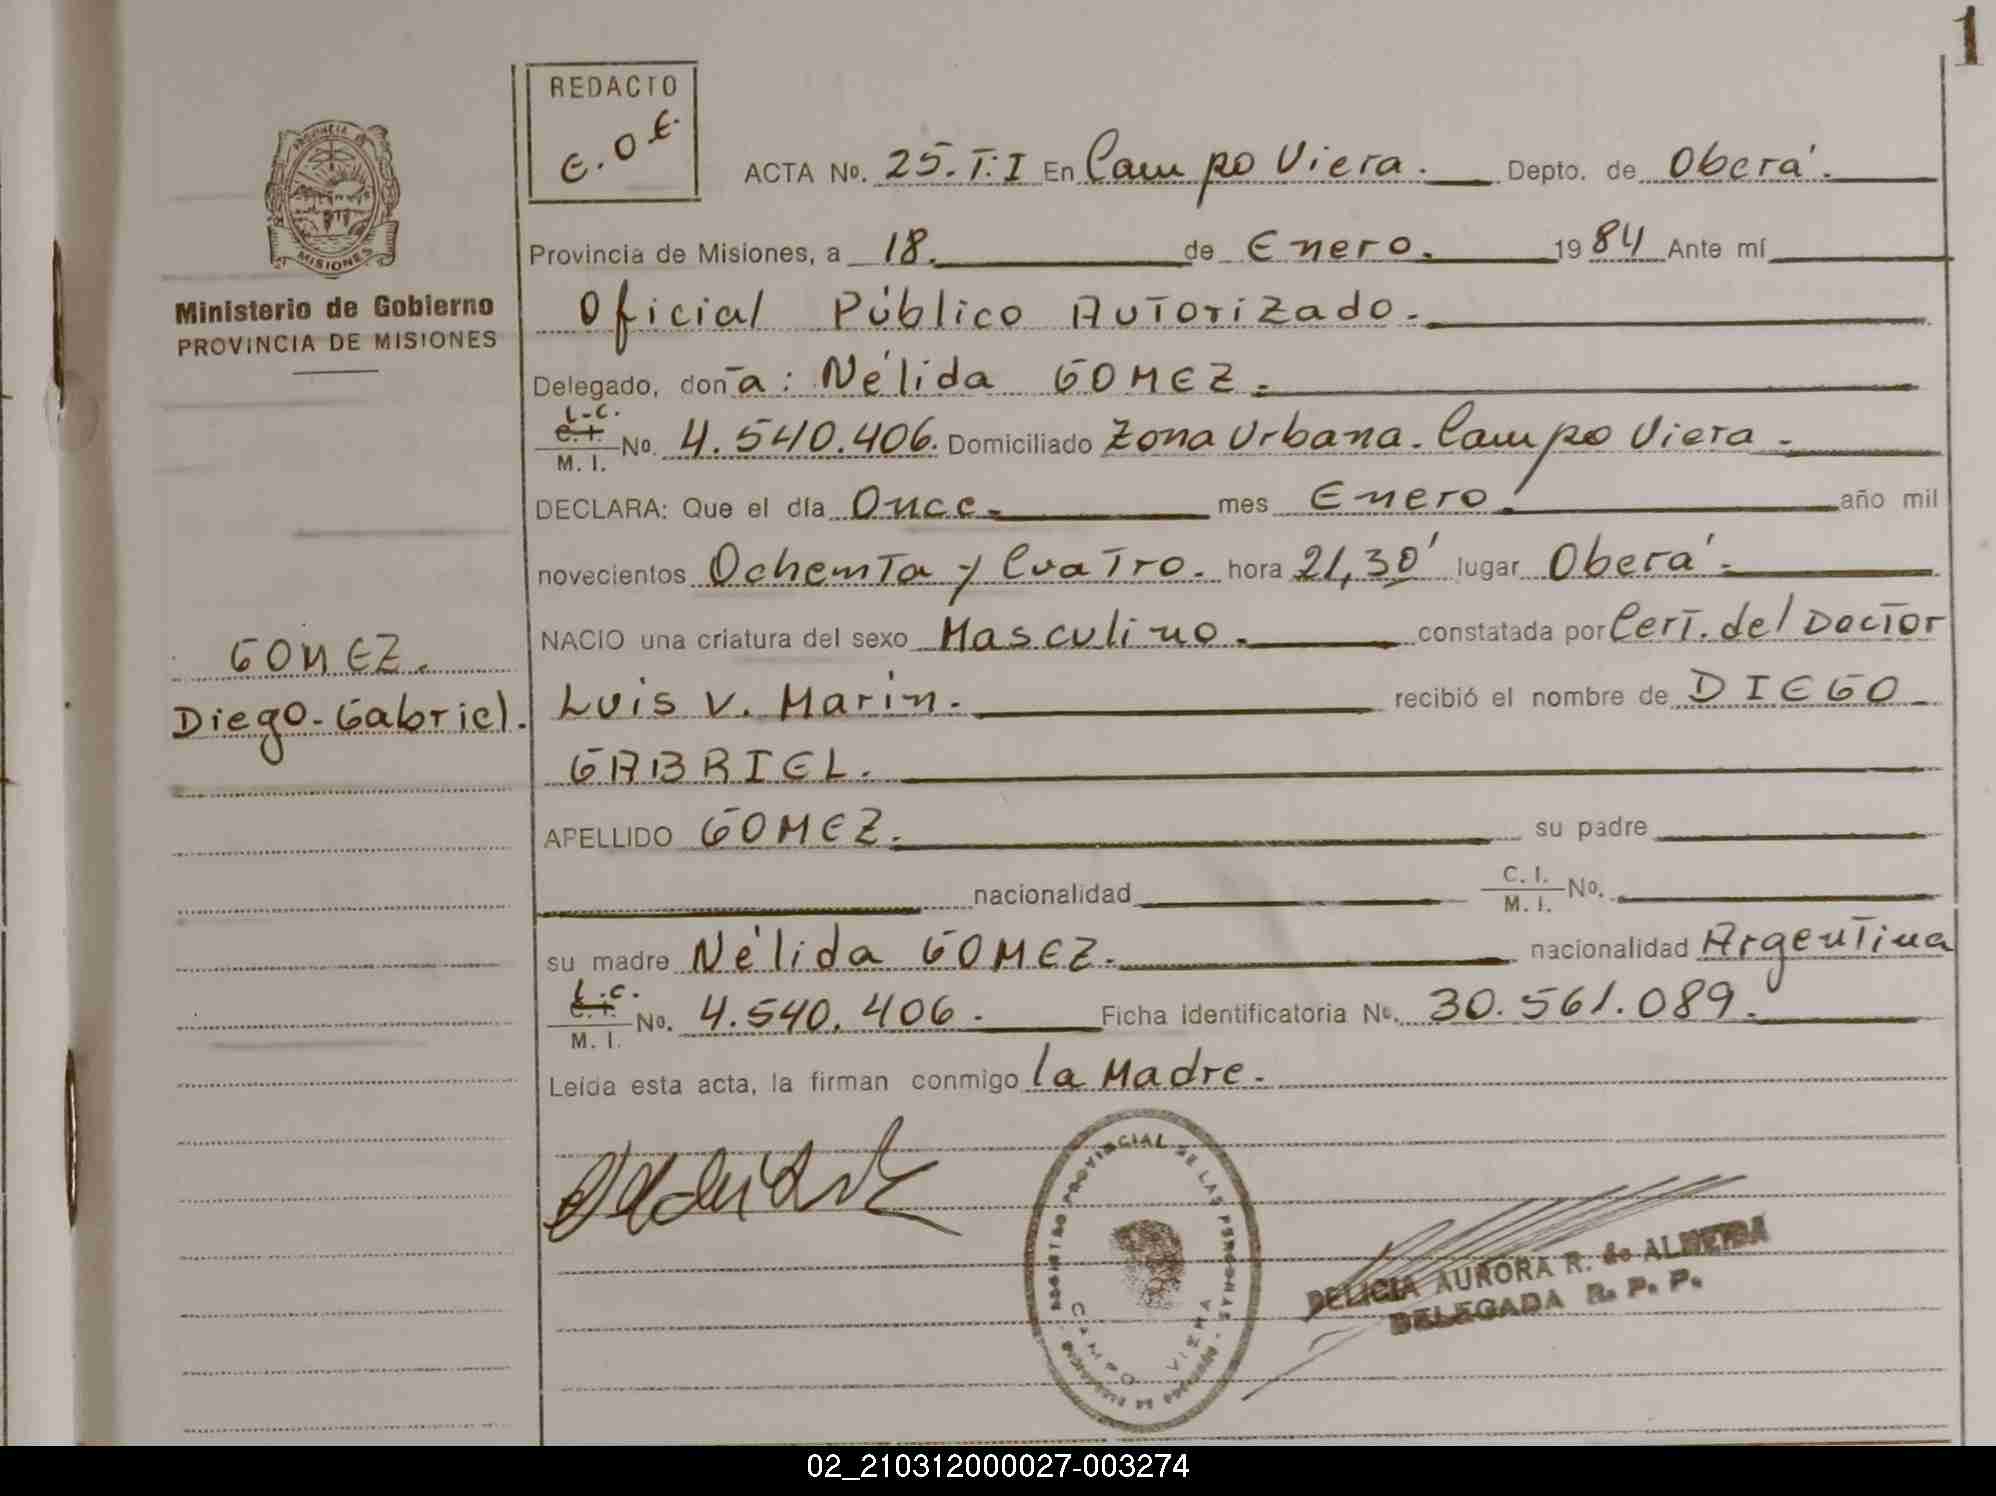 1
REDACTO
E.O.E.
PROVINCIA DE
MISIONES
Ministerio de Gobierno
PROVINCIA DE MISIONES
ACTA No. 25.T.I En Campo Viera. Depto. de Oberá.
Provincia de Misiones, a 18. de Enero. 1984 Ante mí
Oficial Público Autorizado.
Delegado, don a: Nélida GOMEZ.
L.C.
C.I.
M. I. No. 4.540.406. Domiciliado Zona Urbana. Campo Viera.
DECLARA: Que el día Once. mes Enero año mil
novecientos Ochenta y Cuatro. hora 21,30' lugar Oberá.
NACIO una criatura del sexo Masculino. constatada por Cert. del Doctor
Luis V. Marin. recibió el nombre de DIEGO
GABRIEL.
GOMEZ.
Diego-Gabriel.
APELLIDO GOMEZ. su padre
nacionalidad C. I. M. I. No.
su madre Nélida GOMEZ. nacionalidad Argentina
L.C.
C.I.
M. I. No. 4.540.406. Ficha identificatoria No. 30.561.089.
Leída esta acta, la firman conmigo la Madre.
REGISTRO PROVINCIAL DE LAS PERSONAS
CAMPO VIERA
DELICIA AURORA R. de ALMEIDA
DELEGADA R. P. P.
02_210312000027-003274